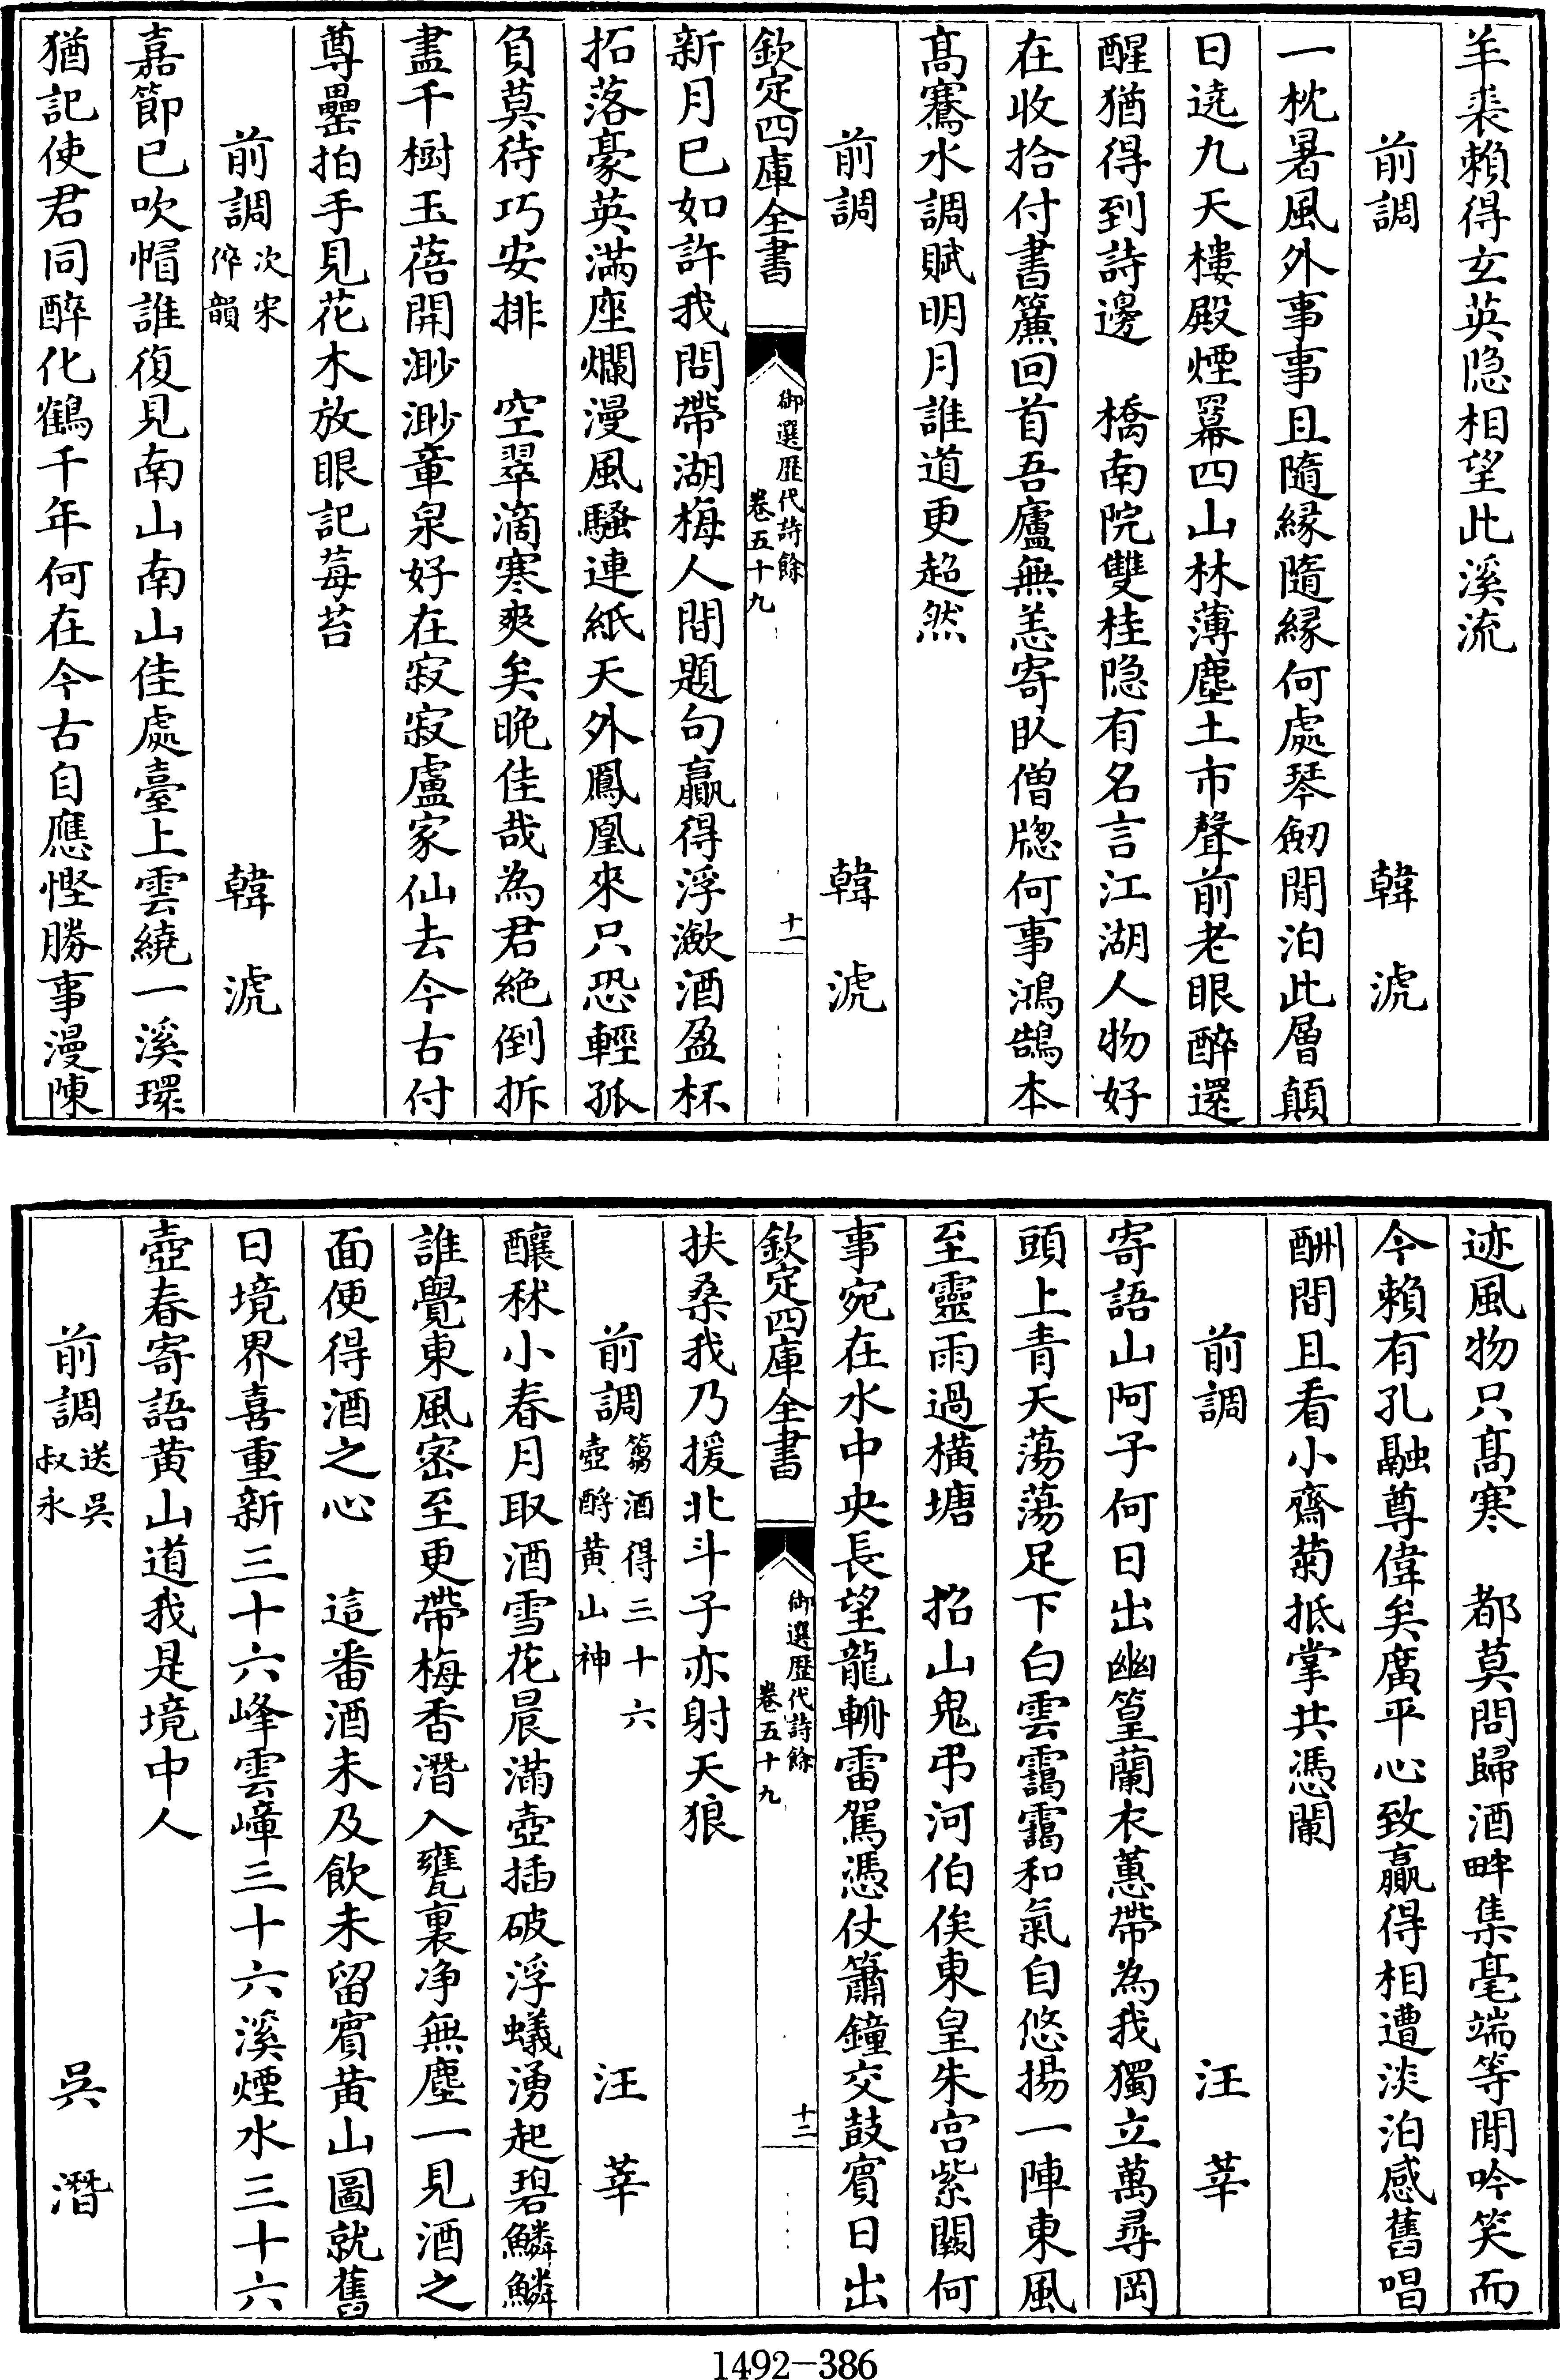 羊裘賴得玄英隐相望此溪流
前調　韓淲
一枕暑風外事事且隨縁隨縁何處琴劒閒泊此層顛
日遶九天樓殿煙羃四山林薄塵土市聲前老眼醉還
醒猶得到詩邊　橋南院雙桂隐有名言江湖人物好
在收拾付書簾回首吾廬無恙寄卧僧牕何事鴻鵠本
髙騫水調賦明月誰道更超然
前調　韓淲
欽定四庫全書　御選歴代詩餘　卷五十九　十一
新月已如許我問帶湖梅人間題句贏得浮瀲酒盈杯
拓落豪英滿座爛漫風騷連紙天外鳳凰來只恐輕孤
負莫待巧安排　空翠滴寒爽矣晚佳哉為君絶倒拆
盡千樹玉蓓開渺渺章泉好在寂寂盧家仙去今古付
尊罍拍手見花木放眼記莓苔
前調次宋倅韻　韓淲
嘉節已吹帽誰復見南山南山佳處臺上雲繞一溪環
猶記使君同醉化鶴千年何在今古自應慳勝事漫陳
迹風物只髙寒　都莫問歸酒畔集毫端等閒吟笑而
今賴有孔融尊偉矣廣平心致贏得相遭淡泊感舊唱
酬間且看小齋菊抵掌共憑闌
前調　汪莘
寄語山阿子何日出幽篁蘭衣蕙帶為我獨立萬尋岡
頭上青天蕩蕩足下白雲靄靄和氣自悠揚一陣東風
至靈雨過橫塘　招山鬼弔河伯俟東皇朱宮紫闕何
事宛在水中央長望龍輈雷駕憑仗簫鐘交鼓賓日出
欽定四庫全書　御選歴代詩餘　卷五十九　十二
扶桑我乃援北斗子亦射天狼
前調篘酒得三十六壺酹黃山神　汪莘
釀秫小春月取酒雪花晨滿壺插破浮蟻湧起碧鱗鱗
誰覺東風密至更帶梅香潛入甕裏净無塵一見酒之
面便得酒之心　這番酒未及飲未留賓黃山圖就舊
日境界喜重新三十六峰雲嶂三十六溪煙水三十六
壺春寄語黃山道我是境中人
前調送吳叔永　吳潛
1492—386